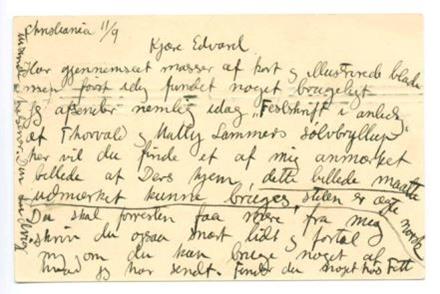 Christiania 11/9
Kjære Edvard.
Har gjennemseet masser af kort og illustrerede blade
men først idag fundet noget brugeligt
jeg afsender nemlig idag "Festskrift i anledn.
af Thorvald og Mally Lammers sølvbryllup
her vil du finde et af mig anmærket
billede af Deres hjem, dette billede maatte
udmærket kunne bruges, stilen er ægte norsk
Du skal forresten faa mere fra mig
skriv du ogsaa snart lidt og fortal
mig om du kan bruge noget af
hvad jeg har sendt. Finder du noget hos